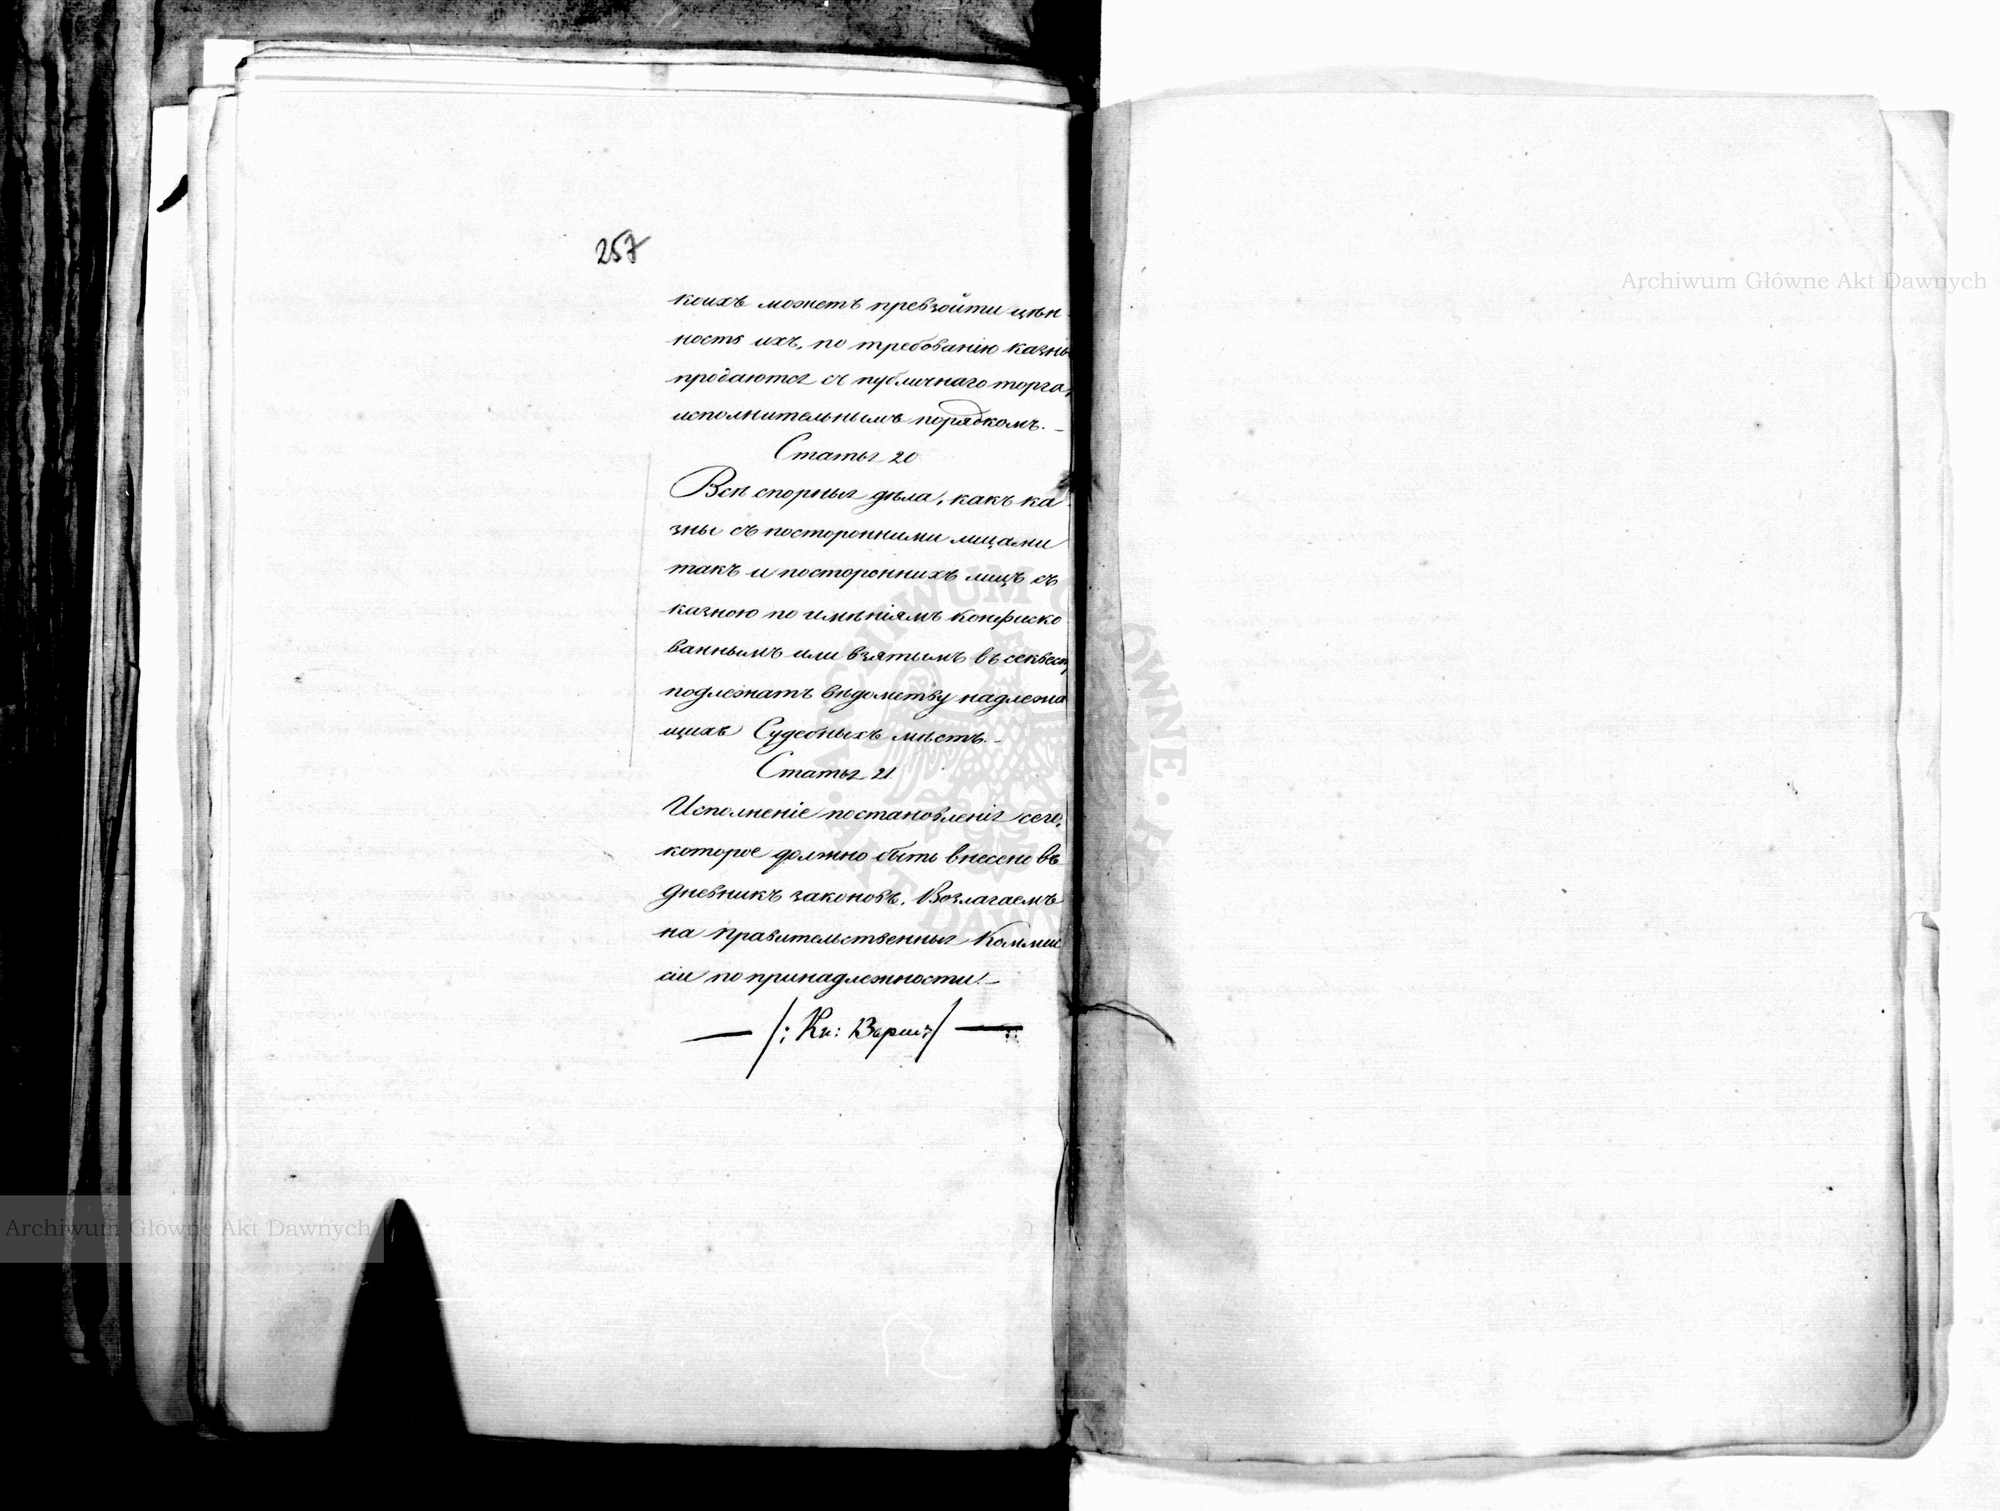 257
коихъ можетъ превзойти цѣн
ность ихъ, по требованію казны
продаются съ публичнаго торга,
исполнительнымъ порядкомъ. –
Статья 20
Всѣ спорныя дѣла, какъ ка
зны съ посторонними лицами
такъ и постороннихъ лицъ съ
казною по имѣніямъ конфиско
ваннымъ или взятымъ въ секвестр
подлежатъ вѣдомству надлежа
щихъ Судебныхъ мѣстъ. –
Статья 21
Исполненіе постановленія сего,
которое должно быть внесено въ
дневникъ законовъ, Возлагаемъ
на Правительственныя Коммис
сіи по принадлежности. –
— /: Кн: Варш: / —
Archiwum Główne Akt Dawnych
Archiwum Główne Akt Dawnych